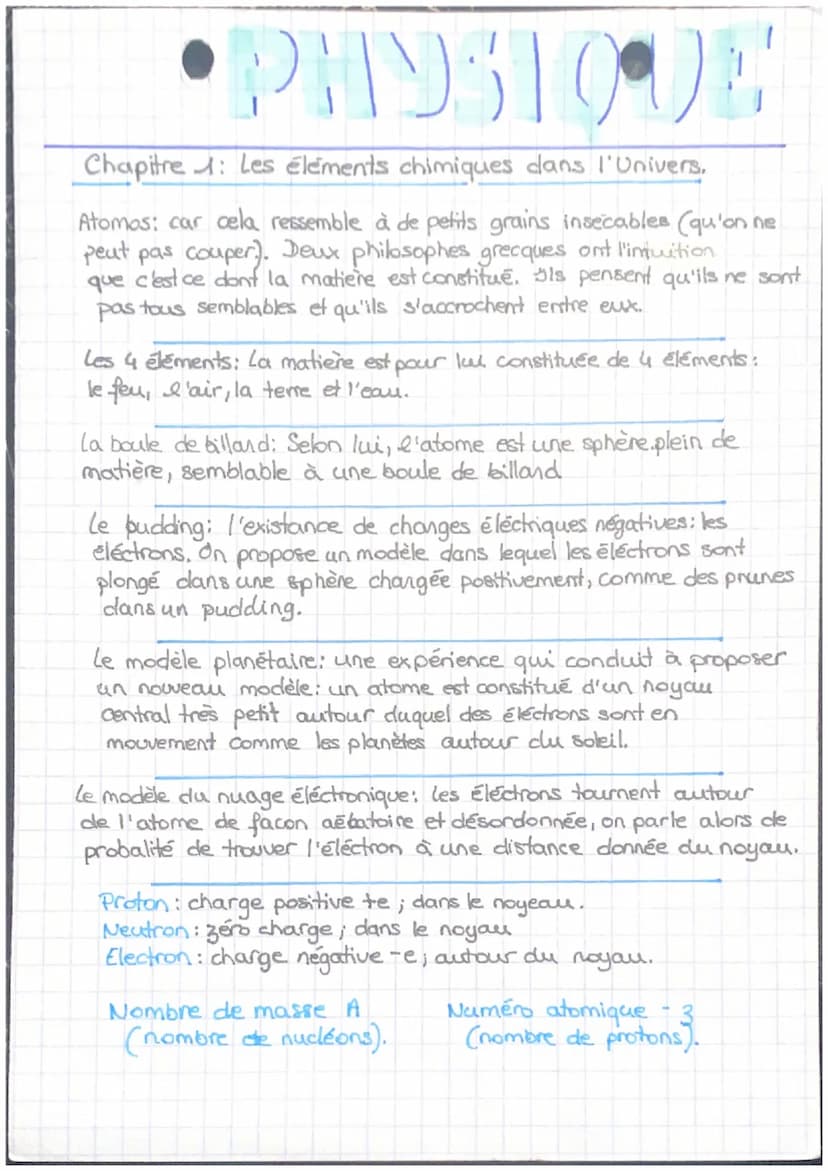 PHYSIQUE
Chapitre 1: Les éléments chimiques dans l'Univers.
Atomos: car cela ressemble à de petits grains insécables (qu'on ne
peut pas couper). Deux philosophes grecques ont l'intuition
que c'est ce dont la matière est constitué. Ils pensent qu'ils ne sont
pas tous semblables et qu'ils s'accrochent entre eux.
Les 4 éléments: La matière est pour lui constituée de 4 éléments:
le feu, l'air, la terre et l'eau.
La boule de billard: Selon lui, l'atome est une sphère plein de
matière, semblable à une boule de billard
Le pudding: l'existance de charges éléctriques négatives: les
éléctrons. On propose un modèle dans lequel les éléctrons sont
plongé dans une sphère chargée positivement, comme des prunes
dans un pudding.
Le modèle planétaire: une expérience qui conduit à proposer
un nouveau modèle: un atome est constitué d'un noyau
central très petit autour duquel des éléctrons sont en
mouvement comme les planètes autour du soleil.
Le modèle du nuage éléctronique: Les éléctrons tournent autour
de l'atome de facon aébatoire et désordonnée, on parle alors de
probalité de trouver l'éléctron à une distance donnée du noyau.
Proton: charge positive +e; dans le noyeau.
Neutron: zéro charge; dans le noyau
Electron: charge négative -e; autour du noyau.
Nombre de masse A
(nombre de nucléons).
Numéro atomique - 3
(nombre de protons).